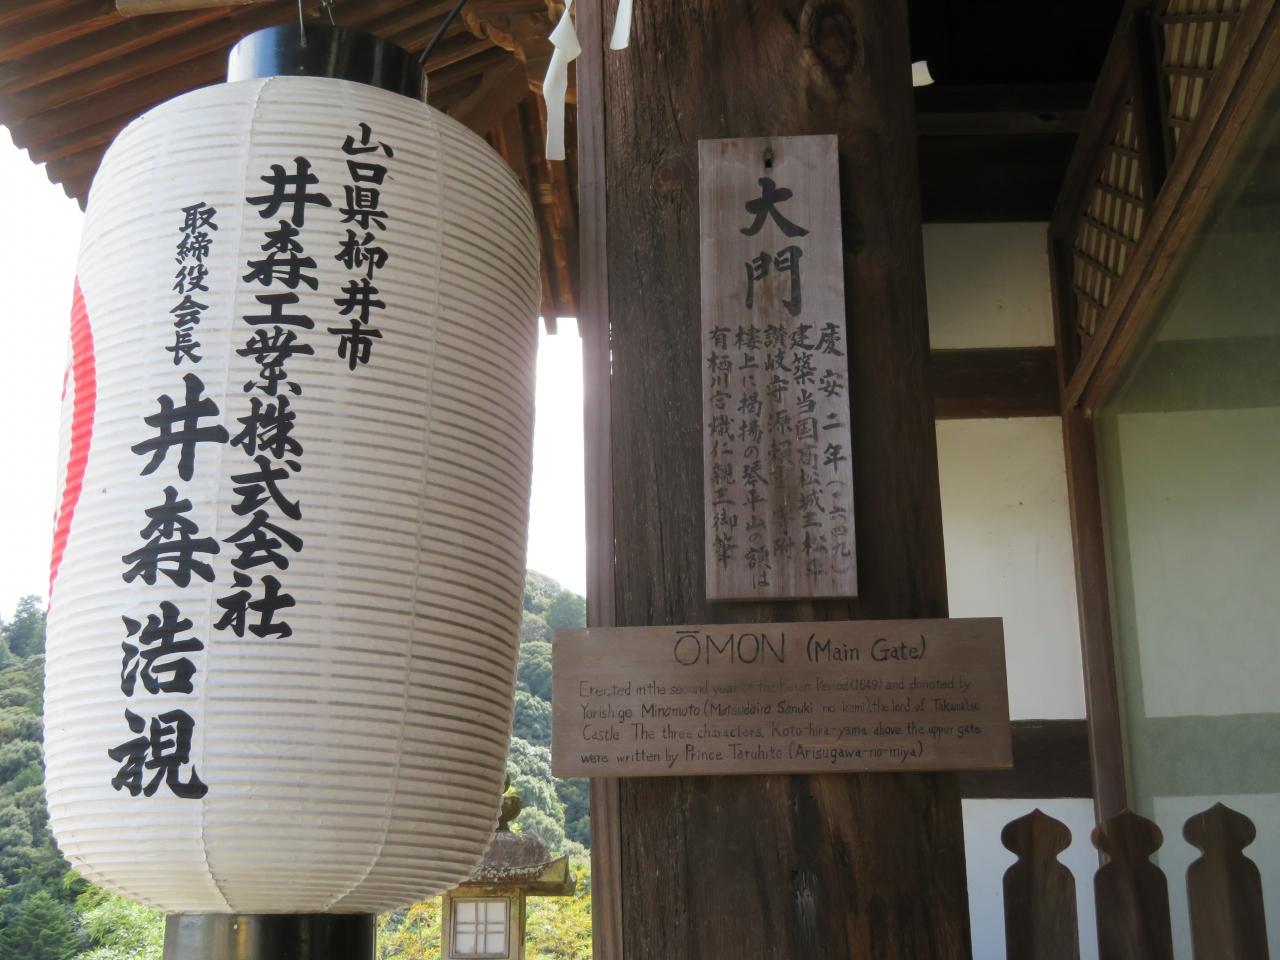 山口県柳井市
井森工業株式会社
取締役会長 井森浩視
大門
慶安二年(一六四九)
建築当国高松城主松平
讃岐守源頼重寄附
楼上に掲揚の琴平山の額は
有栖川宮熾仁親王御筆
ŌMON (Main Gate)
Erected in the second year of the Keian Period (1649) and donated by
Yorishige Minamoto (Matsudaira Sanuki no kami), the lord of Takamatsu
Castle The three characters, Koto-hira-yama above the upper gate
were written by Prince Taruhito (Arisugawa-no-miya)